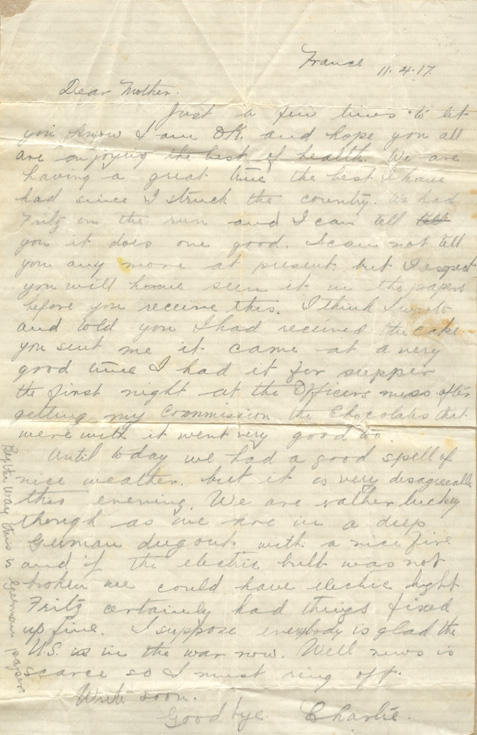 France 11.4.17.
Dear Mother.
Just a few lines to let
you know I am OK. and hope you all
are enjoying the best of health. We are
having a great time the best I have
had since I struck the country. We had
Fritz on the run and I can tell
you it does one good. I can not tell
you any more at present but I expect
you will have seen it in the papers
before you receive this. I think I wrote
and told you I had received the cake
you sent me it came at a very
good time I had it for supper
the first night at the Officers mess after
getting my Commission the Chocolates that
were with it went very good too.
Until today we had a good spell of
nice weather. but it is very disagreeable
this evening. We are rather lucky
though as we are in a deep
German dugout with a nice fire
and if the electric bulb was not
broken we could have electric light
Fritz certainly had things fixed
up fine. I suppose everybody is glad the
U.S. is in the war now. Well news is
scarce so I must ring off.
Write soon.
Goodbye Charlie.
By the way this is German paper